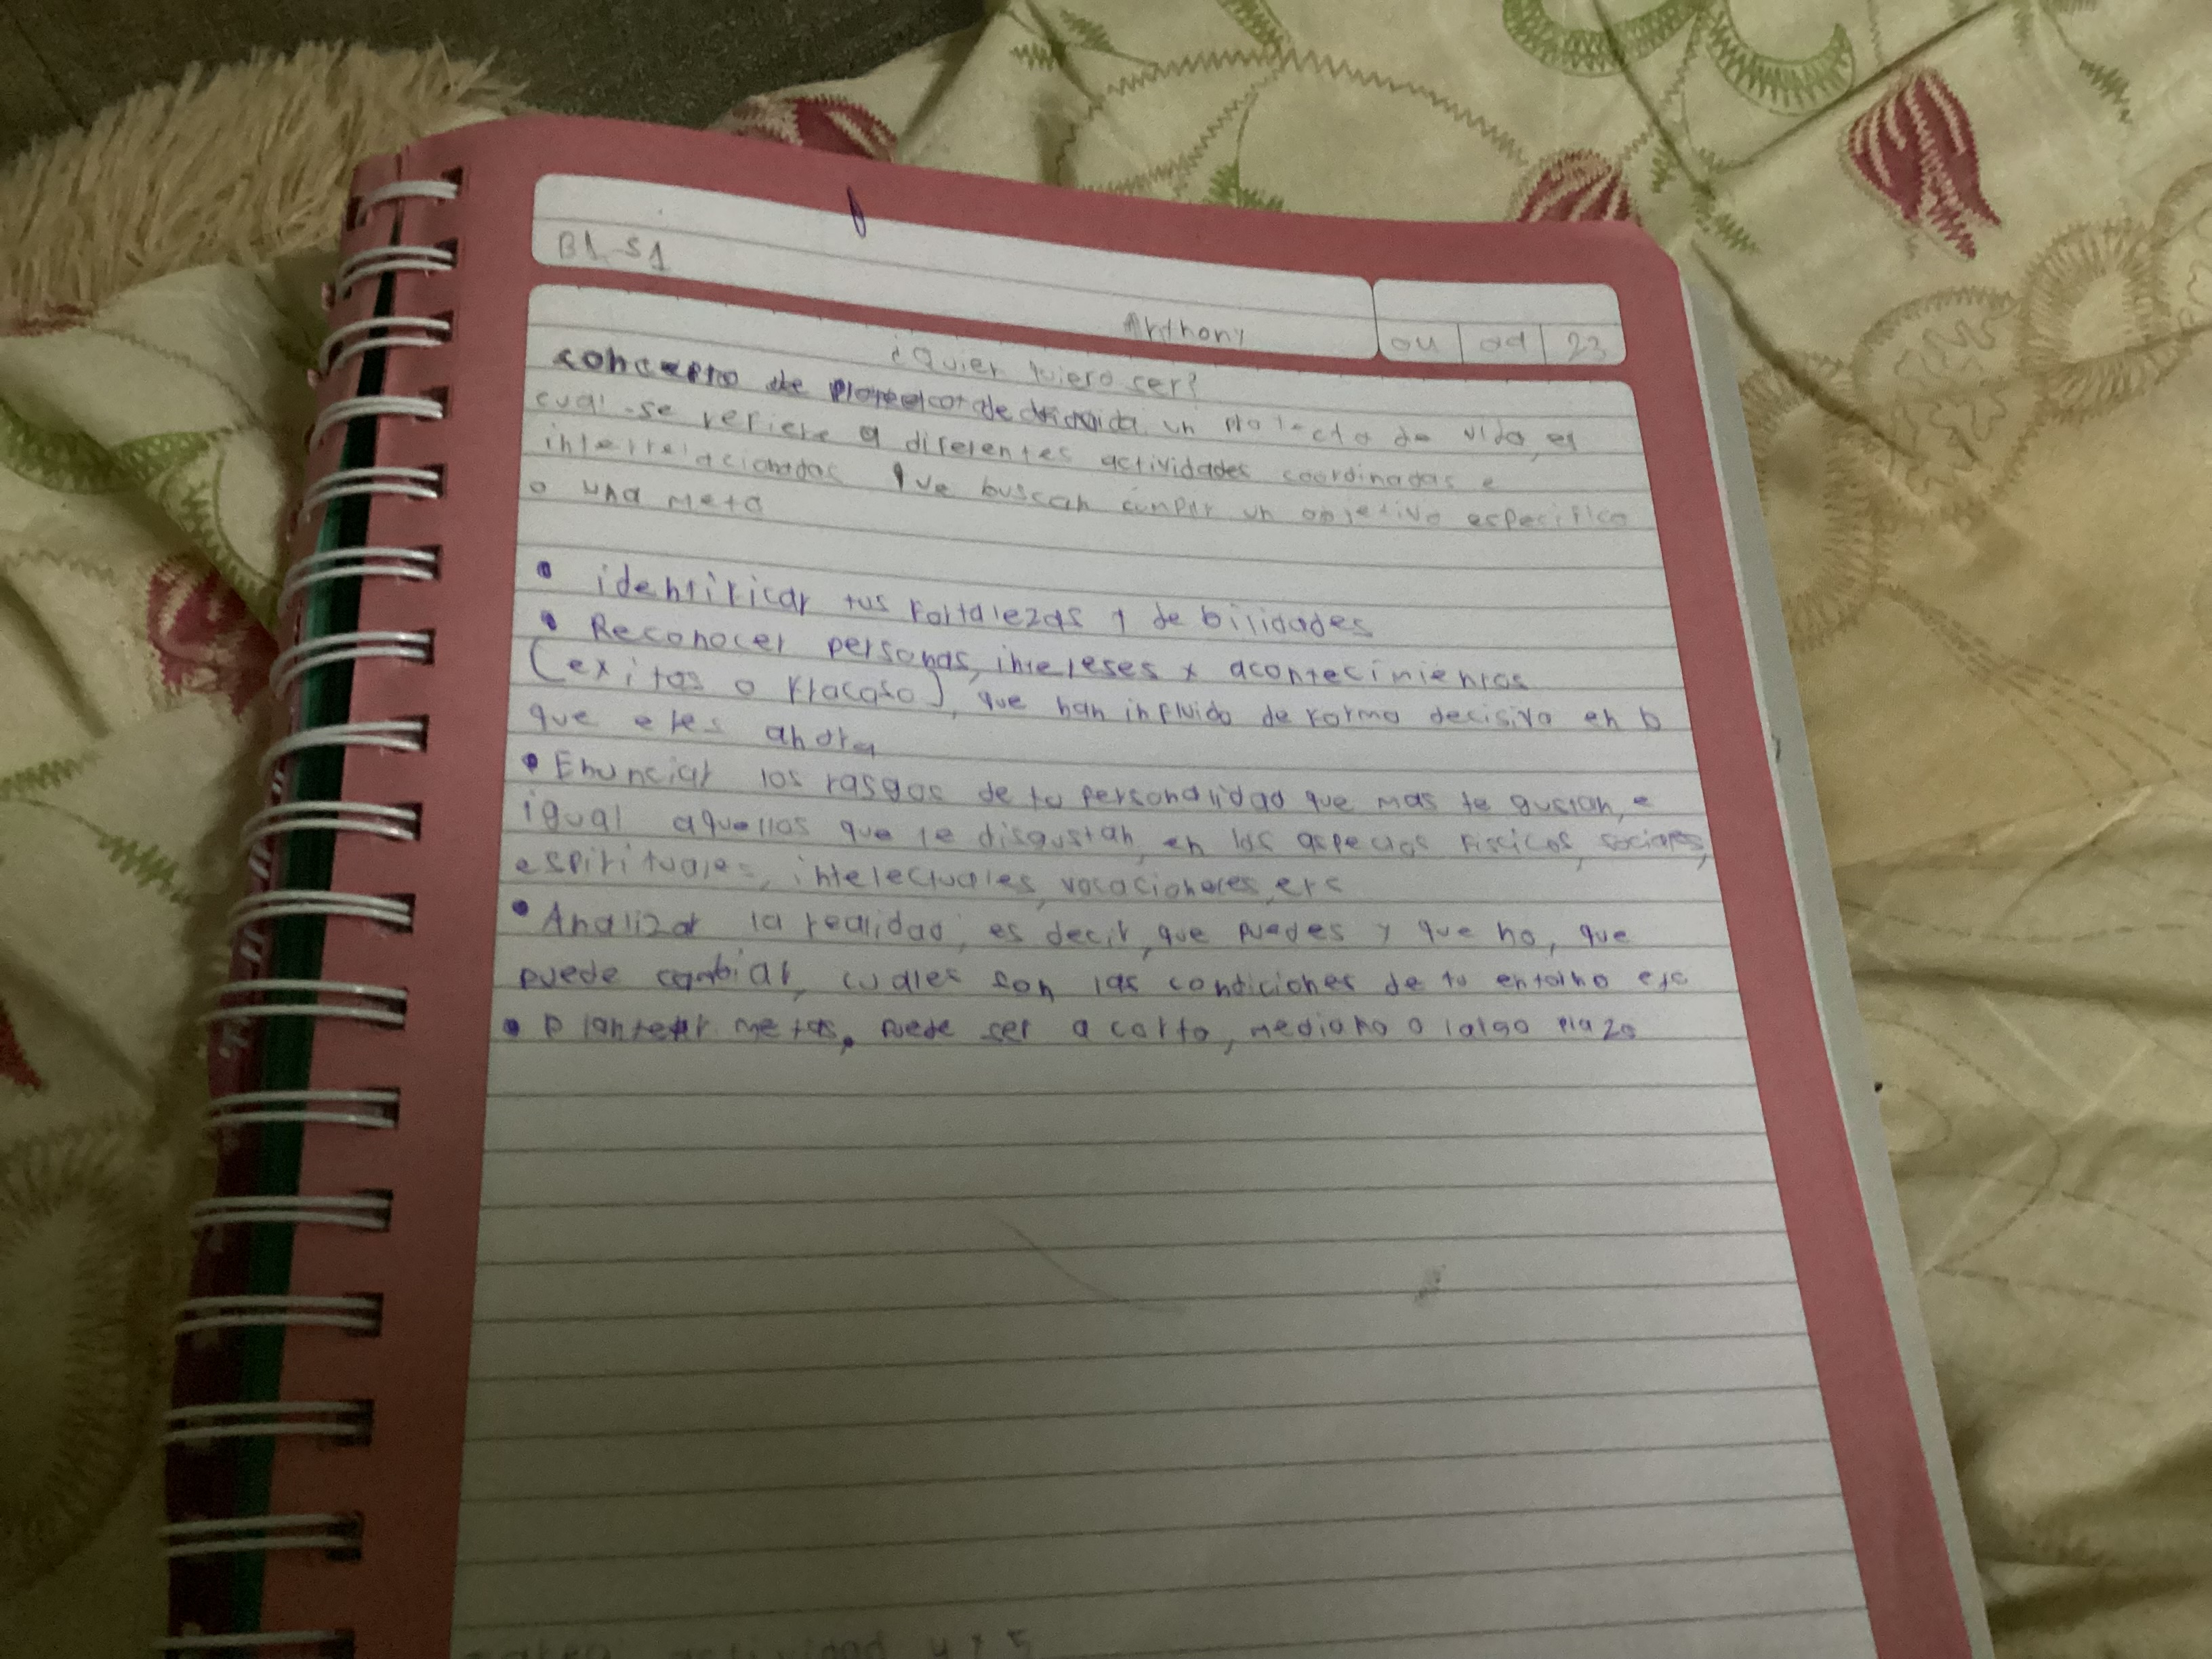 B1 S1
Anthony
04 | 09 | 23
¿Quien quiero ser?
concepto de de un protecto de vida, es
cual se refiere a diferentes actividades coordinadas e
interrelacionadas que buscan cumplir un objetivo especifico
o una meta
• identificar tus fortalezas y debilidades
• Reconocer personas, intereses y acontecimientos
(exitos o fracaso), que han influido de forma decisiva en lo
que eres ahora
• Enunciar los rasgos de tu personalidad que mas te gustan, e
igual aquellos que te disgustan, en los aspectos fiscicos, sociales,
espirituales, intelectuales, vocacionales, etc
• Analizar la realidad, es decir, que puedes y que no, que
puede cambiar, cuales son las condiciones de tu entorno etc
• Plantear metas. Puede ser a corto, mediano o largo plazo
actividad 4 y 5